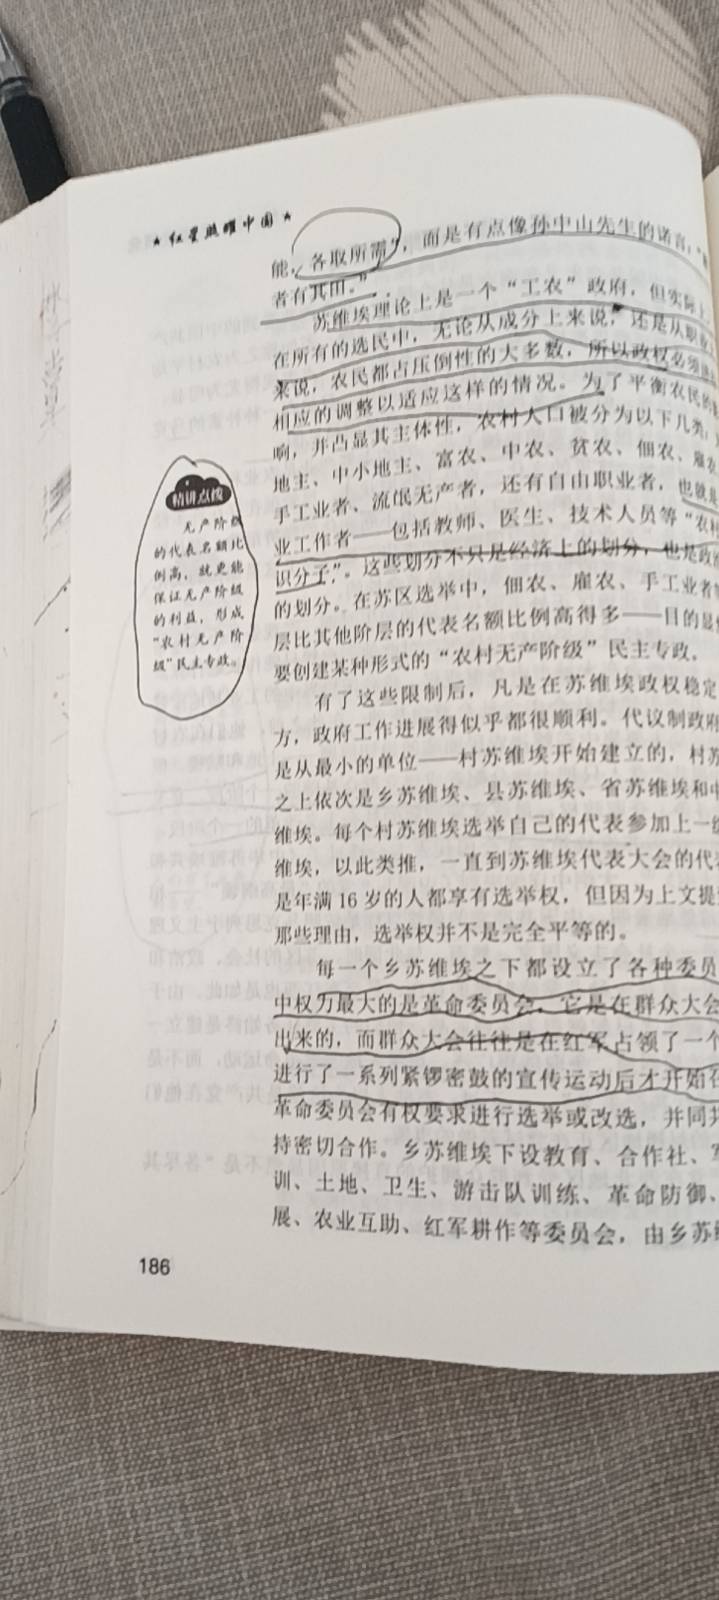 ★ 红星照耀中国 ★
能，各取所需”，而是有点像孙中山先生的诺言：“
者有其田。”
苏维埃理论上是一个“工农”政府，但实际
在所有的选民中，无论从成分上来说，还是从职业
来说，农民都占压倒性的大多数，所以政权必须
相应的调整以适应这样的情况。为了平衡农民的
响，并凸显其主体性，农村人口被分为以下几类：
地主、中小地主、富农、中农、贫农、佃农、雇农
手工业者、流氓无产者，还有自由职业者，也就是
业工作者——包括教师、医生、技术人员等“农村
识分子”。这些划分不只是经济上的划分，也是政治
的划分。在苏区选举中，佃农、雇农、手工业者等
层比其他阶层的代表名额比例高得多——目的显
要创建某种形式的“农村无产阶级”民主专政。
有了这些限制后，凡是在苏维埃政权稳定
方，政府工作进展得似乎都很顺利。代议制政府
是从最小的单位——村苏维埃开始建立的，村苏
之上依次是乡苏维埃、县苏维埃、省苏维埃和中
维埃。每个村苏维埃选举自己的代表参加上一级
维埃，以此类推，一直到苏维埃代表大会的代
是年满 16 岁的人都享有选举权，但因为上文提
那些理由，选举权并不是完全平等的。
每一个乡苏维埃之下都设立了各种委员
中权力最大的是革命委员会，它是在群众大会
出来的，而群众大会往往是在红军占领了一个
进行了一系列紧锣密鼓的宣传运动后才开始召
革命委员会有权要求进行选举或改选，并同共
持密切合作。乡苏维埃下设教育、合作社、军
训、土地、卫生、游击队训练、革命防御、
展、农业互助、红军耕作等委员会，由乡苏维
精讲点拨
无产阶级
的代表名额比
例高，就更能
保证无产阶级
的利益，形成
“农村无产阶
级”民主专政。
186